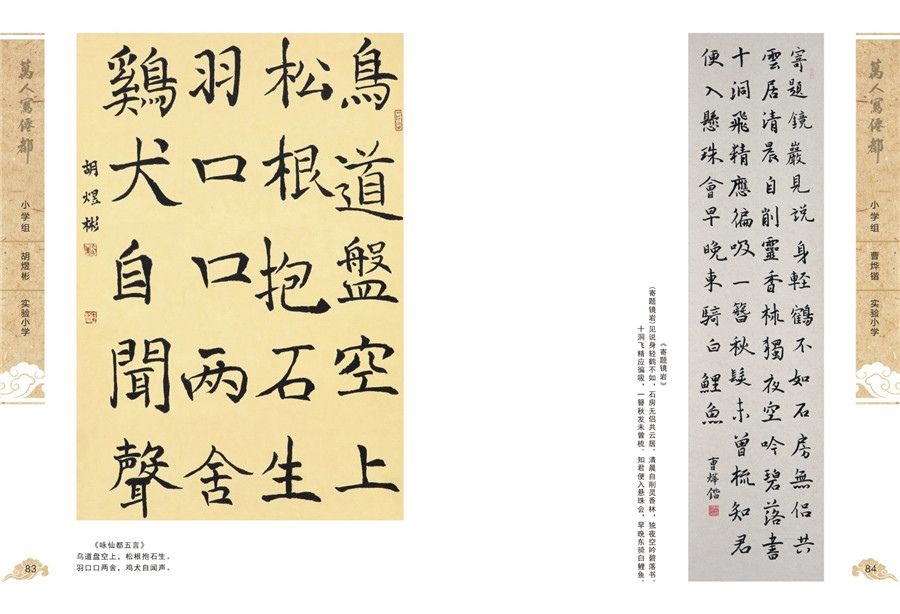 萬人寫僊都
小学组
胡煜彬
实验小学
鳥道盤空上
松根抱石生
羽口口两舍
鷄犬自聞聲
胡煜彬
《咏仙都五言》
鸟道盘空上，松根抱石生。
羽口口两舍，鸡犬自闻声。
83
寄題鏡巖見説身輕鶴不如石房無侣共
雲居清晨自削靈香林獨夜空吟碧落書
十洞飛精應徧吸一簪秋髮未曾梳知君
便入懸珠會早晚東騎白鯉魚
曹燁鍇
《寄题镜岩》
《寄题镜岩》见说身轻鹤不如，石房无侣共云居。清晨自削灵香林，独夜空吟碧落书。
十洞飞精应骗吸，一簪秋发未曾梳。知君便入悬珠会，早晚东骑白鲤鱼。
萬人寫僊都
小学组
曹烨锴
实验小学
84